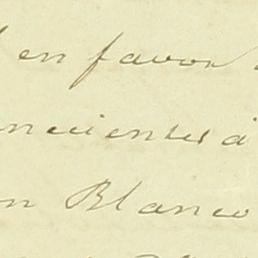 en favor
necientes á
n Blanco